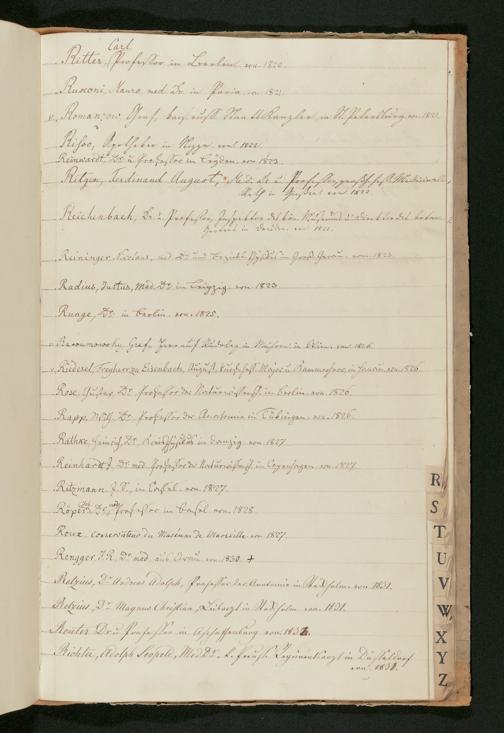 Carl
Ritter, Professor in Berlin von 1820.
Rusconi, Mauro, med. Dr. in Pavia von 1821.
Romanzow, Graf, Kanzler in St. Petersburg von 1821.
Risso, Apotheker in Nizza von 1822.
Reinwardt, Dr. u. Professor in Leyden von 1823.
Ritgen, Ferdinand August, Med. Dr. u. Professor,
Rath in Giessen von 1822
Reichenbach, Dr. u. Professor, Inspektor des
in Dresden von 1822.
Reininger, med. Dr. und von 1823.
Radius, Justus, Med. Dr. in Leipzig von 1823
Runge, Dr. in Berlin von 1825.
Graf, in Wien von 1826
Riedesel, Freyherr zu Eisenbach, August, Major u. Kammerherr, in von 1826
Rose, Gustav, Dr. Professor der in Berlin von 1826
Rapp, Wilh. Dr. Professor der Anatomie in Tübingen von 1826
Rathke, Heinrich, Dr. Kreisphysikus in Danzig von 1827
Reinhardt, J. Dr. med. Professor der in Copenhagen von 1827
Ritzmann, J. S., in Cassel von 1827.
Röper, Dr. Professor in Basel von 1828
Roux, Conservateur du Museum de Marseille von 1827.
Rengger, J. R. Dr. med. aus Arau von 1830. +
Retzius, Dr. Andreas Adolph, Professor der Anatomie in Stockholm von 1831.
Retzius, Dr. Magnus Christian, Leibarzt in Stockholm von 1831.
Reuter Dr. u. Professor in Aschaffenburg von
Richter, Adolph Leopold, Med. Dr. k. Preuß. Regimentsarzt in Düsseldorf
von
R
S
T
U
V
W
X
Y
Z